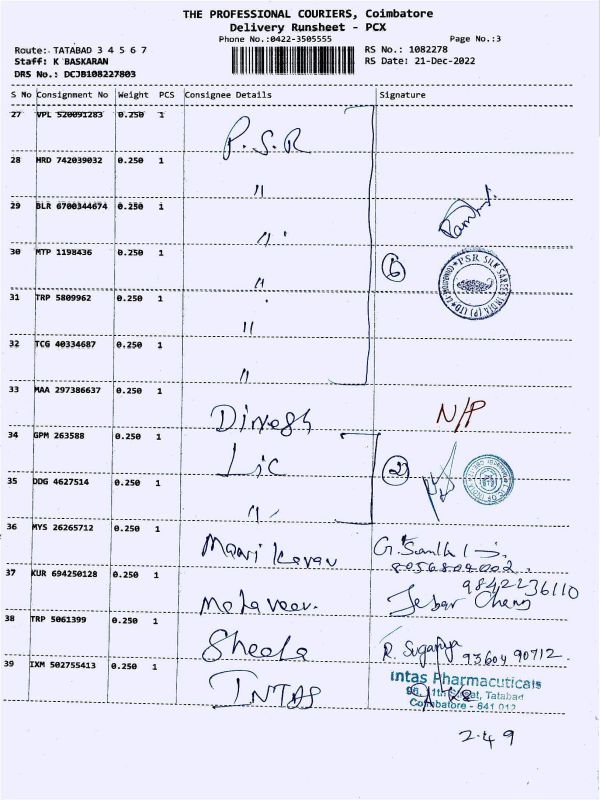 THE PROFESSIONAL COURIERS, Coimbatore
Delivery Runsheet - PCX
Phone No.:0422-3505555
Page No.:3
Route: TATABAD 3 4 5 6 7
RS No.: 1082278
Staff: K BASKARAN
RS Date: 21-Dec-2022
DRS No.: DCJB108227803
S No Consignment No Weight PCS Consignee Details Signature
27 VPL 520091283 0.250 1 P.S.R
28 HRD 742039032 0.250 1 "
29 BLR 6700344674 0.250 1 "
30 MTP 1198436 0.250 1 " 6 PSR SILK SAREES INDIA (P) LTD
31 TRP 5809962 0.250 1 "
32 TCG 40334687 0.250 1 "
33 MAA 297386637 0.250 1 Dinesh N/P
34 GPM 263588 0.250 1 Lic 2
35 DDG 4627514 0.250 1 "
36 MYS 26265712 0.250 1
9842236110
37 KUR 694250128 0.250 1
38 TRP 5061399 0.250 1 Sheela R. Suganya 93604 90712
39 IXM 502755413 0.250 1 INTAS
Intas Pharmacuticals
Street, Tatabad
Coimbatore - 641 012
2.49